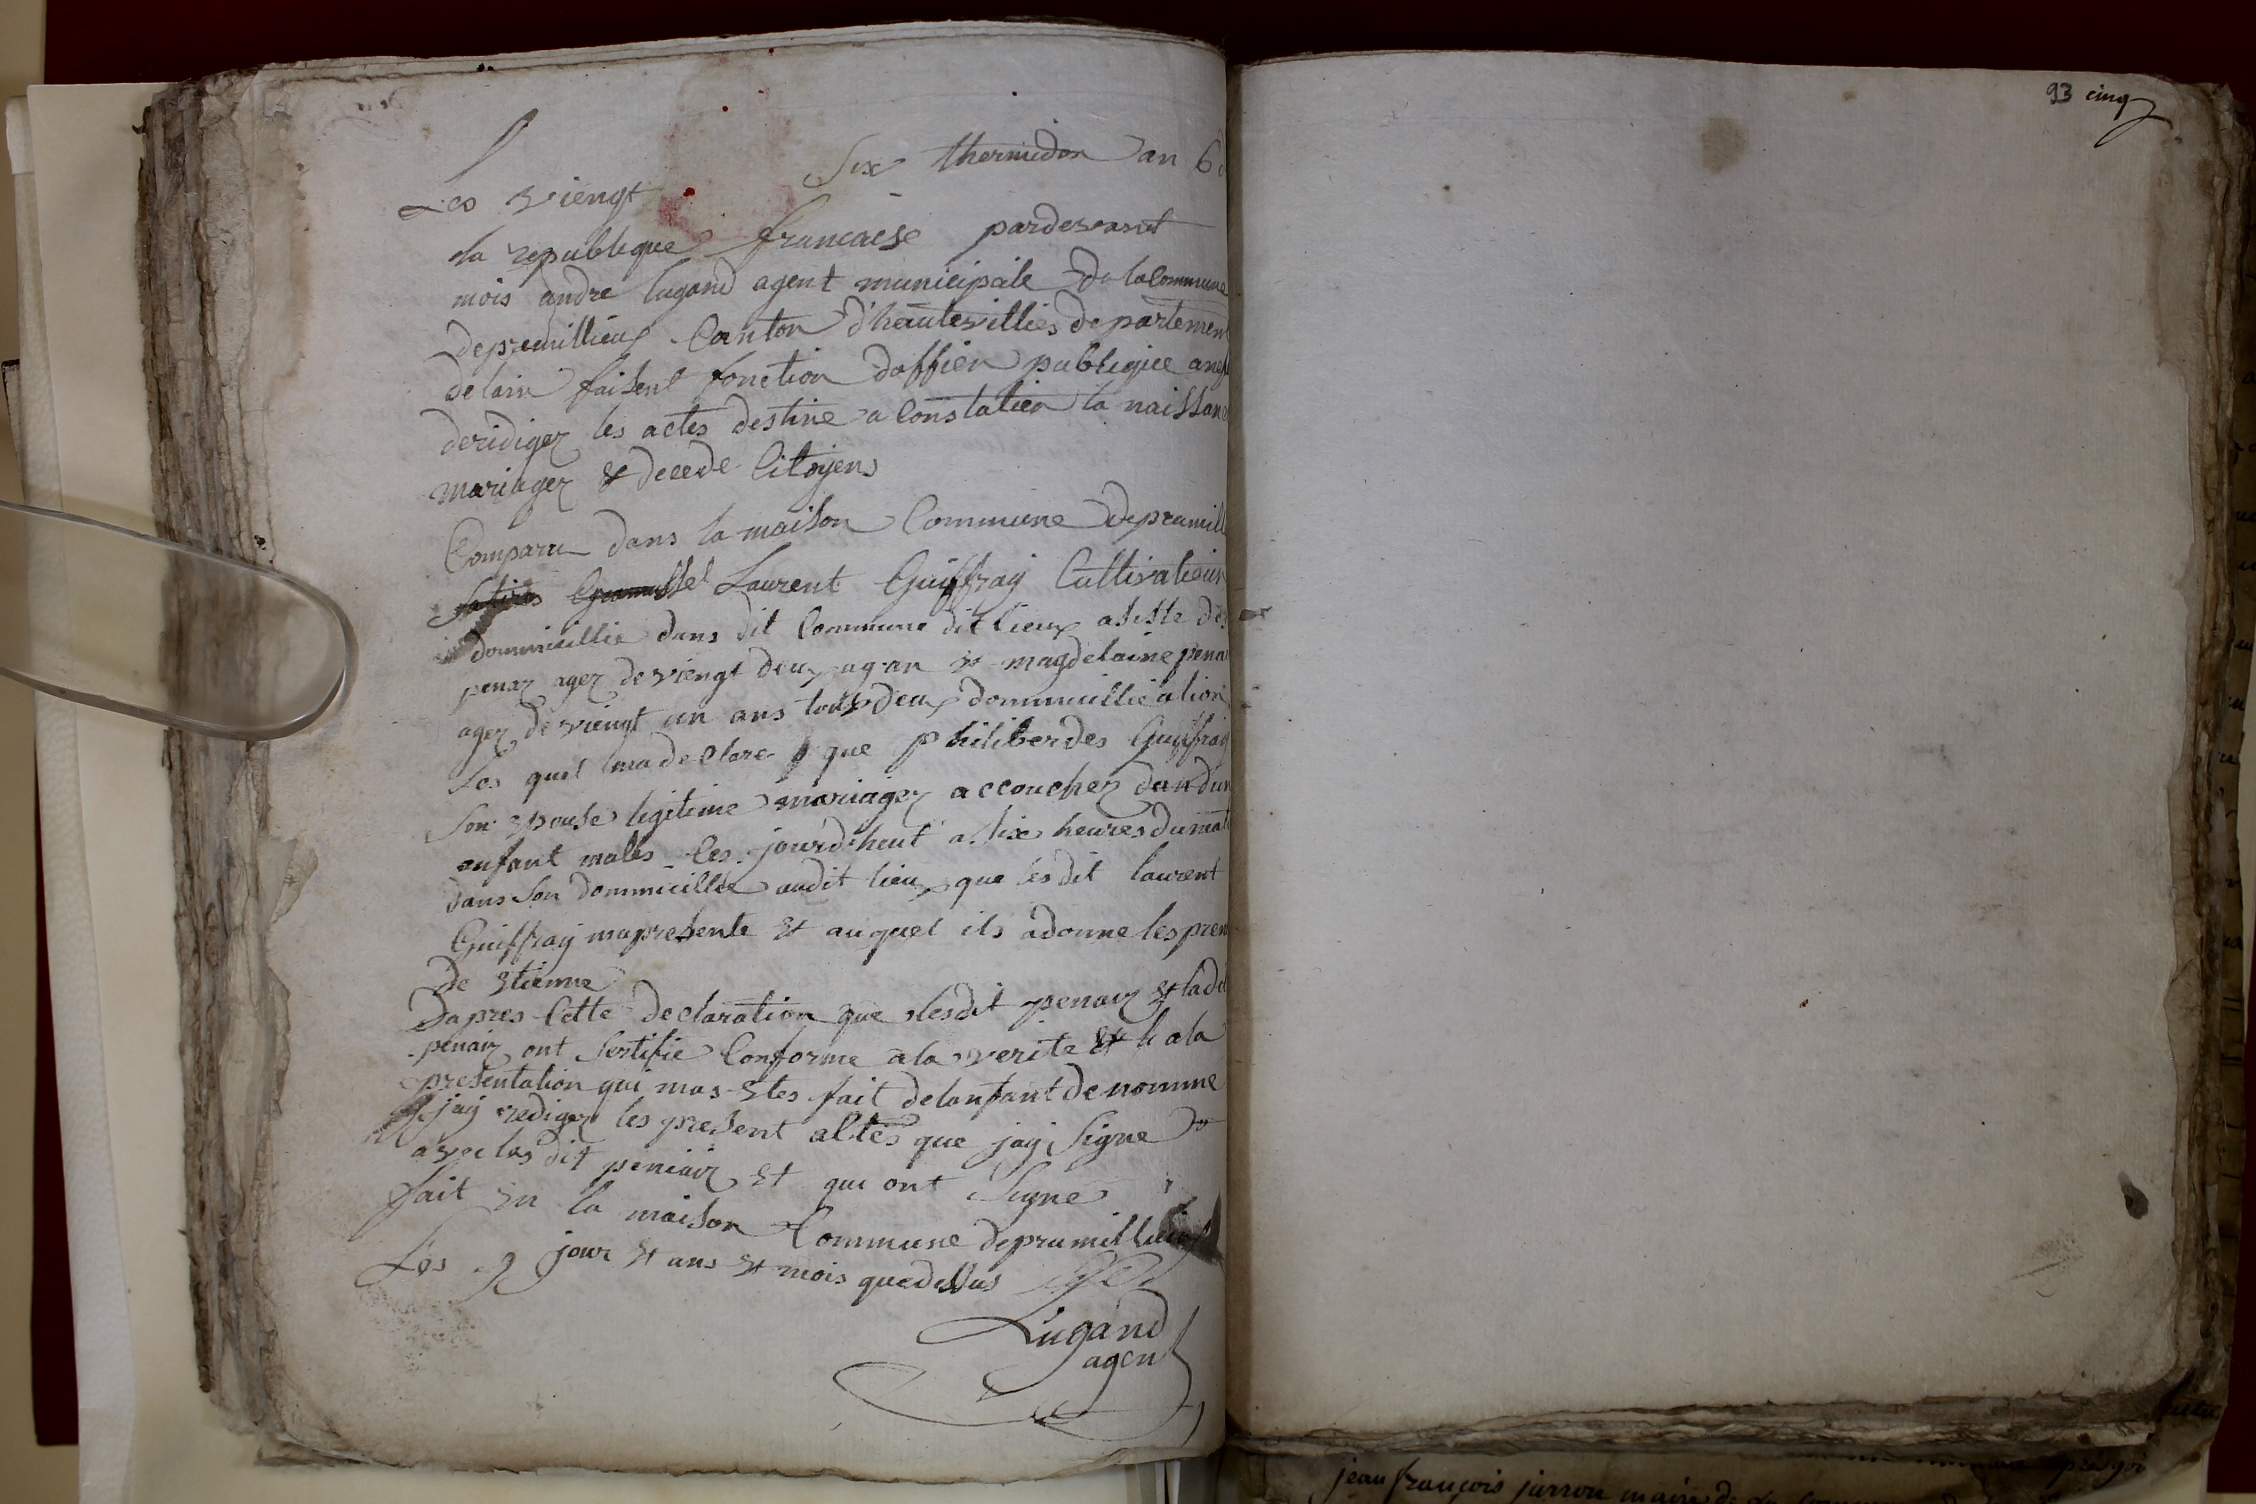 Les viengt Six thermidor an 6 d
la republique francaise pardevant
mois andre lugand agent municipale de la Commune
de premillieux Canton d'hautevillies departement
de lain faisent fonction doffier publique
deridiger les actes destine a Constatier la naissan
mariager & decede Citoyens
Comparu dans la maison Commune de premill
Laurent Guiffray Cultivatieur
dommicillie dans dit Commune dit lieux asiste de
penaz ager de viengt deux an & magdelaine pena
ager de viengt un ans tout deux dommicillie
Les quel ma declare que philiberdes Guiffray
Son epouse legitime mariager accoucher dun
enfant males les jourdheut a six heures du mat
dans son dommicillie audit lieux que lesdit laurent
Guiffray mapresente et auquel ils adonne les pren
de Etienne
Dapres Cette declaration que lesdit penaiz et ladi
penaiz ont sertifie Conforme a la verite et a la
presentation qui mas etes fait delanfant denomme
jay rediger les present altes que jay signe
avec les dit penaiz et qui ont signe
fait en la maison Commune de premillieux
Les jour et ans et mois quedessus
Lugand
agent
93 cinq
jean françois juron maire de la commune